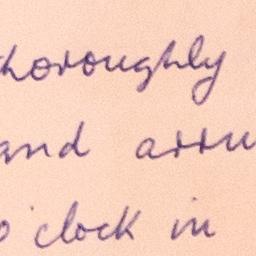 thoroughly
and arriv
o'clock in